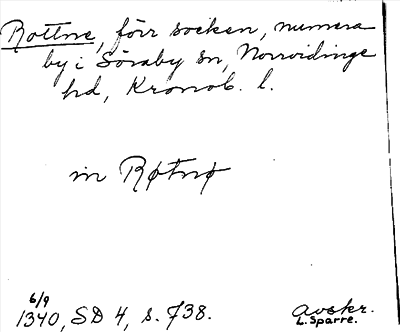 Rottne, förr socken, numera
by i Söraby sn, Norrvidinge
hd, Kronob. l.
in Røtnø
6/9
1340, SD 4, s. 738.
Avskr.
L. Sparre.